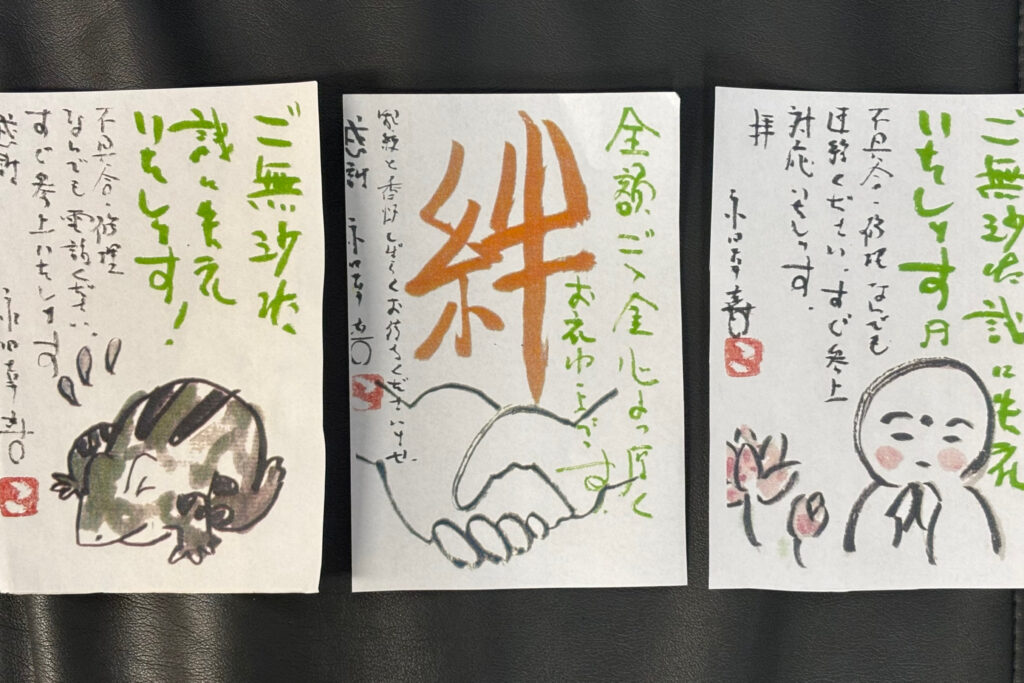 ご無沙汰
誠に失礼
いたします!
不具合・修理
なんでも電話ください、
すぐ参上いたします
感謝
全額ご入金心より厚く
お礼申し上げます
絆
しばらくお待ちくださいませ
感謝
ご無沙汰誠に失礼
いたします
不具合・修理なんでも
連絡ください、すぐ参上
対応いたします。
拝